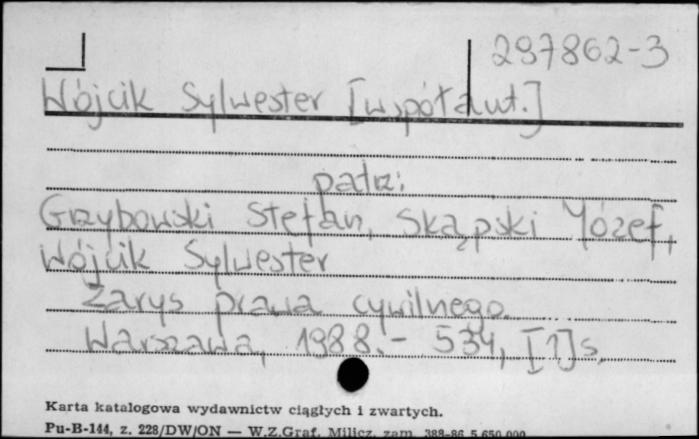 297862-3
Wójcik Sylwester [współaut.]
patrz:
Grzybowski Stefan, Skąpski Józef,
Wójcik Sylwester
Zarys prawa cywilnego.
Warszawa, 1988.- 534, [1] s.
Karta katalogowa wydawnictw ciągłych i zwartych.
Pu-B-144, z. 228/DW/ON — W.Z.Graf. Milicz, zam. 388-86 5 650 000